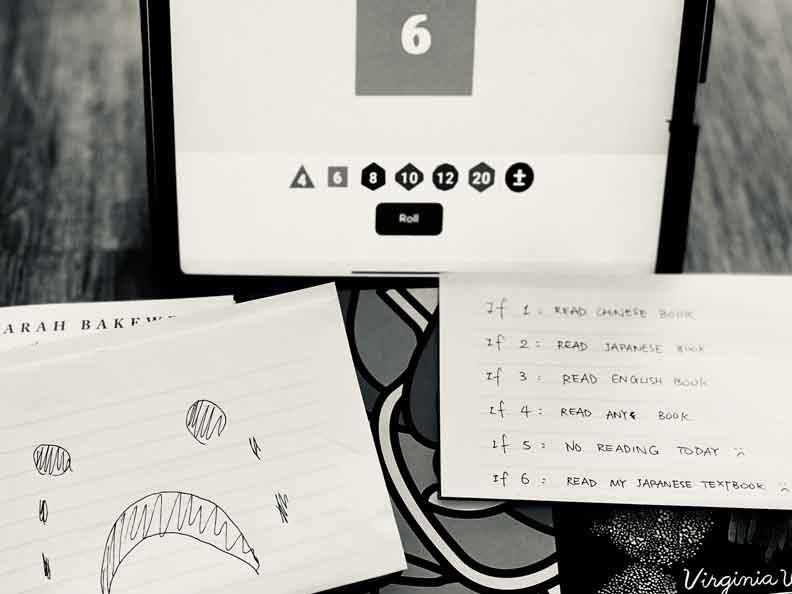 6
4 6 8 10 12 20 ±
Roll
ARAH BAKEW
If 1: READ CHINESE BOOK
If 2: READ JAPANESE BOOK
If 3: READ ENGLISH BOOK
If 4: READ ANY BOOK
If 5: NO READING TODAY
If 6: READ MY JAPANESE TEXTBOOK
Virginia W